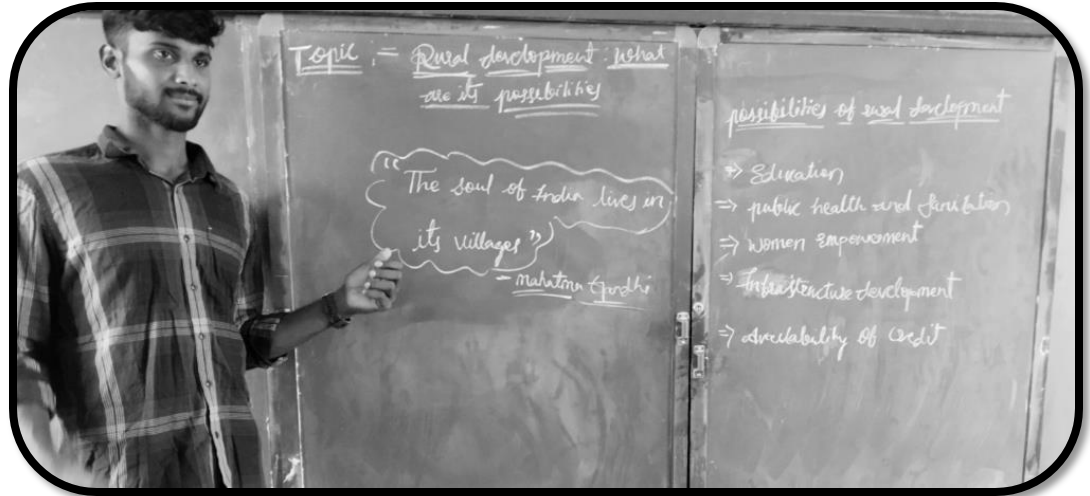 Topic := Rural development : what
are its possibilities
"The soul of India lives in
its villages"
- Mahatma Gandhi
possibilities of rural development
=> Education
=> public health and Sanitation
=> women Empowerment
=> Infrastructure development
=> Availability of Credit